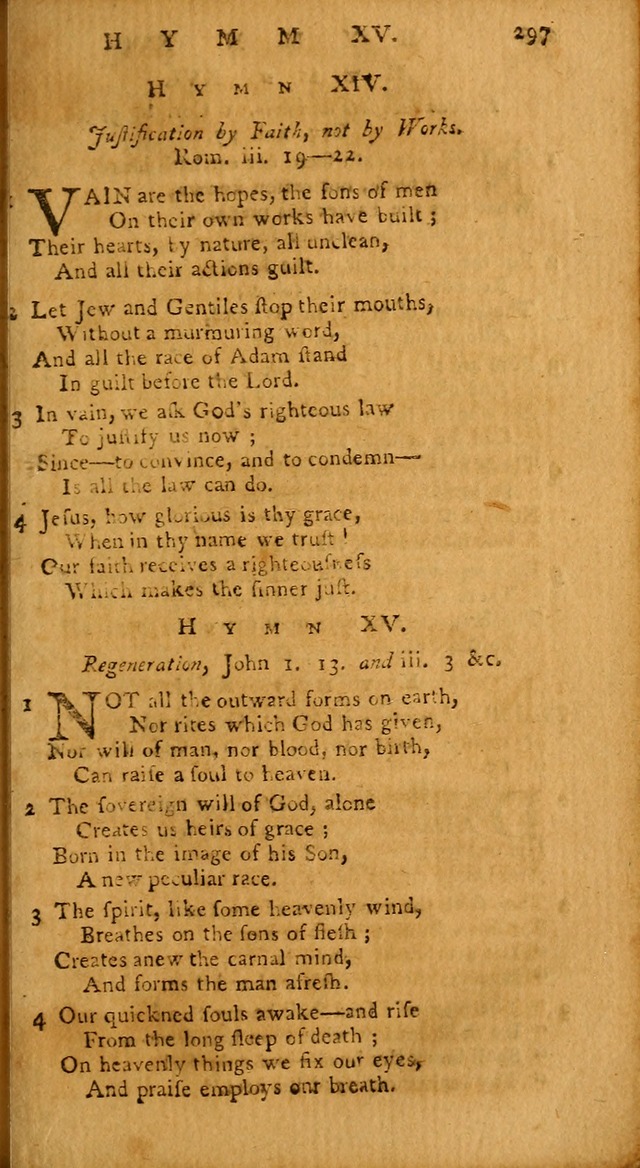 H Y M M XV. 297
HYMN XIV.
Juſtification by Faith, not by Works.
Rom. iii. 19—22.
VAIN are the hopes, the ſons of men
On their own works have built ;
Their hearts, by nature, all unclean,
And all their actions guilt.
2 Let Jew and Gentiles ſtop their mouths,
Without a murmuring word,
And all the race of Adam ſtand
In guilt before the Lord.
3 In vain, we aſk God's righteous law
To juſtify us now ;
Since—to convince, and to condemn—
Is all the law can do.
4 Jeſus, how glorious is thy grace,
When in thy name we truſt !
Our faith receives a righteouſneſs
Which makes the ſinner juſt.
HYMN XV.
Regeneration, John 1. 13. and iii. 3 &c.
1 NOT all the outward forms on earth,
Nor rites which God has given,
Nor will of man, nor blood, nor birth,
Can raiſe a ſoul to heaven.
2 The ſovereign will of God, alone
Creates us heirs of grace ;
Born in the image of his Son,
A new peculiar race.
3 The ſpirit, like ſome heavenly wind,
Breathes on the ſons of fleſh ;
Creates anew the carnal mind,
And forms the man afreſh.
4 Our quickned ſouls awake—and riſe
From the long ſleep of death ;
On heavenly things we fix our eyes,
And praiſe employs our breath.